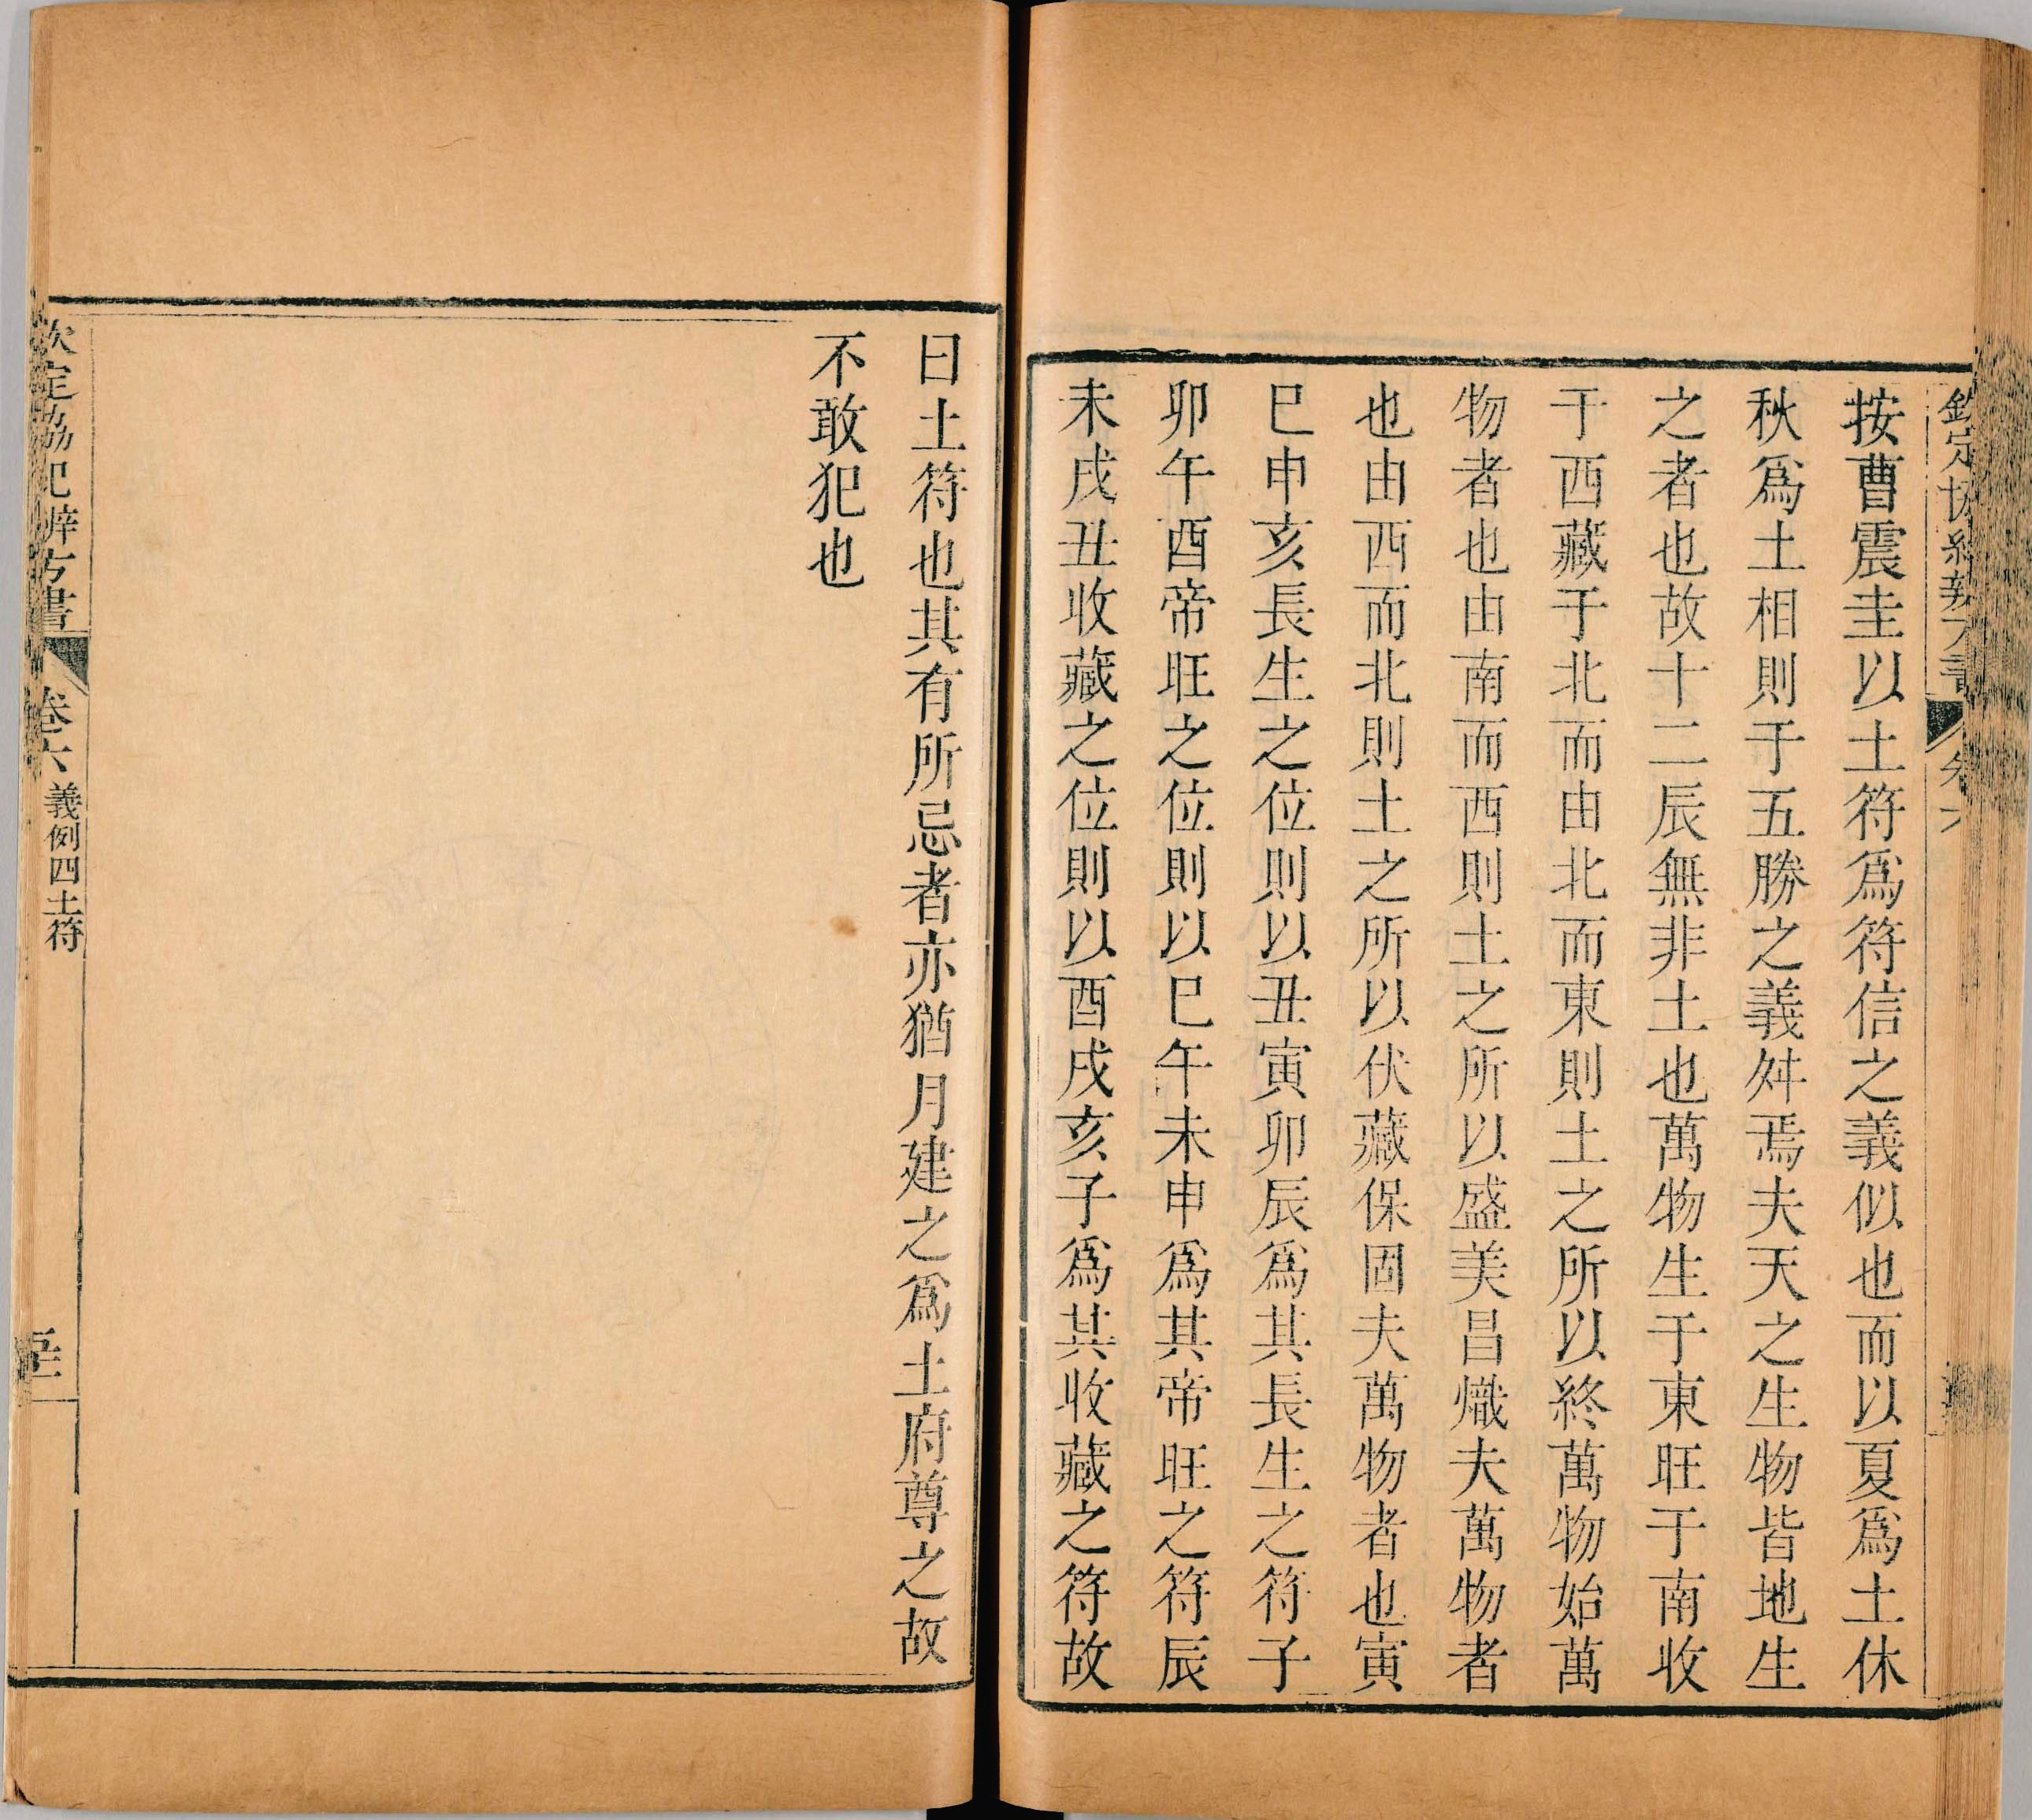 按曹震圭以土符爲符信之義似也而以夏爲土休
秋爲土相則于五勝之義舛焉夫天之生物皆地生
之者也故十二辰無非土也萬物生于東旺于南收
于西藏于北而由北而東則土之所以終萬物始萬
物者也由南而西則土之所以盛美昌熾夫萬物者
也由西而北則土之所以伏藏保固夫萬物者也寅
巳申亥長生之位則以丑寅卯辰爲其長生之符子
卯午酉帝旺之位則以巳午未申爲其帝旺之符辰
未戌丑收藏之位則以酉戌亥子爲其收藏之符故
曰土符也其有所忌者亦猶月建之爲土府尊之故
不敢犯也
定協紀辨方書 卷六 義例四土符